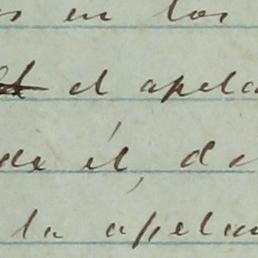 en los
el apela
de él, de
la apelan